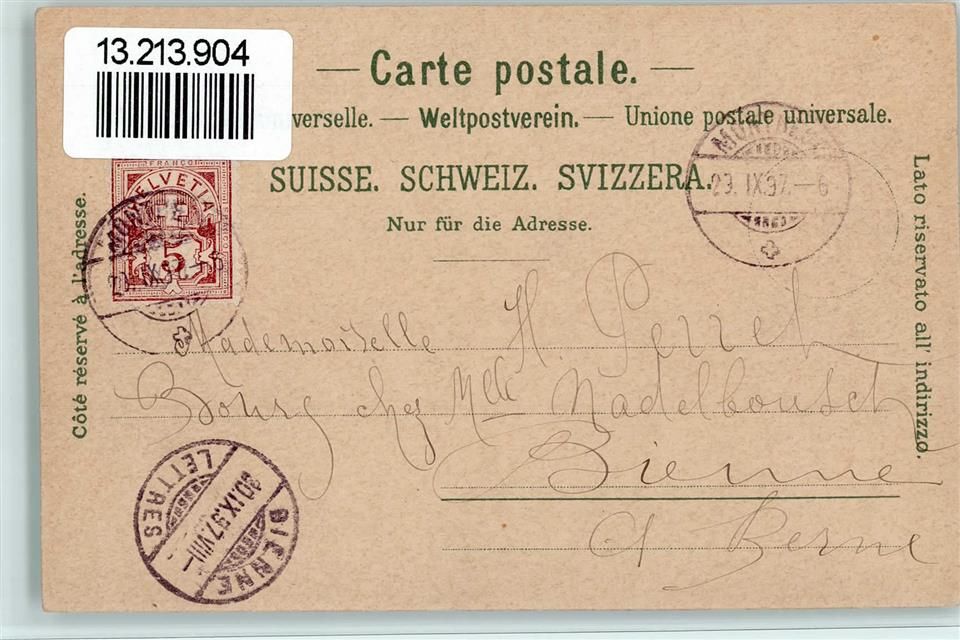 13.213.904
Carte postale.
verselle. — Weltpostverein. — Unione postale universale.
SUISSE. SCHWEIZ. SVIZZERA.
Nur für die Adresse.
Côté réservé à l'adresse.
Lato riservato all' indirizzo.
FRANCO
HELVETIA
5
29. IX.97.–6
29. IX.97.–6
Mademoiselle H. Perret
Bourg chez Mlle Nadelbousch
Bienne
Ct Berne
LETTRES
30.IX.97.VIII–
BIENNE